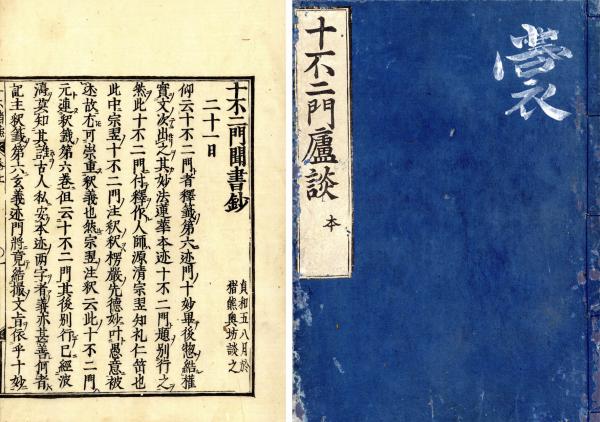 十不二門廬談
本
十不二門聞書鈔
二十一日
貞和五八月於
猪熊奥坊談之
仰云十不二門者釋籤第六迹門十妙畢後惣結權
實文次出之其妙法蓮華本迹十不二門題別行之
然此十不二門付釋作人師源清宗翌知礼仁岳也
此中宗翌十不二門注釈楞嚴先德妙叶愚意被
述故尤可崇重釈義也然宗翌注釈云此十不二門
元連釈籤第六巻但云十不二門其後別行已經波
濤莫知其誰古人私安本迹兩字者義亦甚善何者
記主釈籤第六玄義迹門將竟結撮文旨依乎十妙